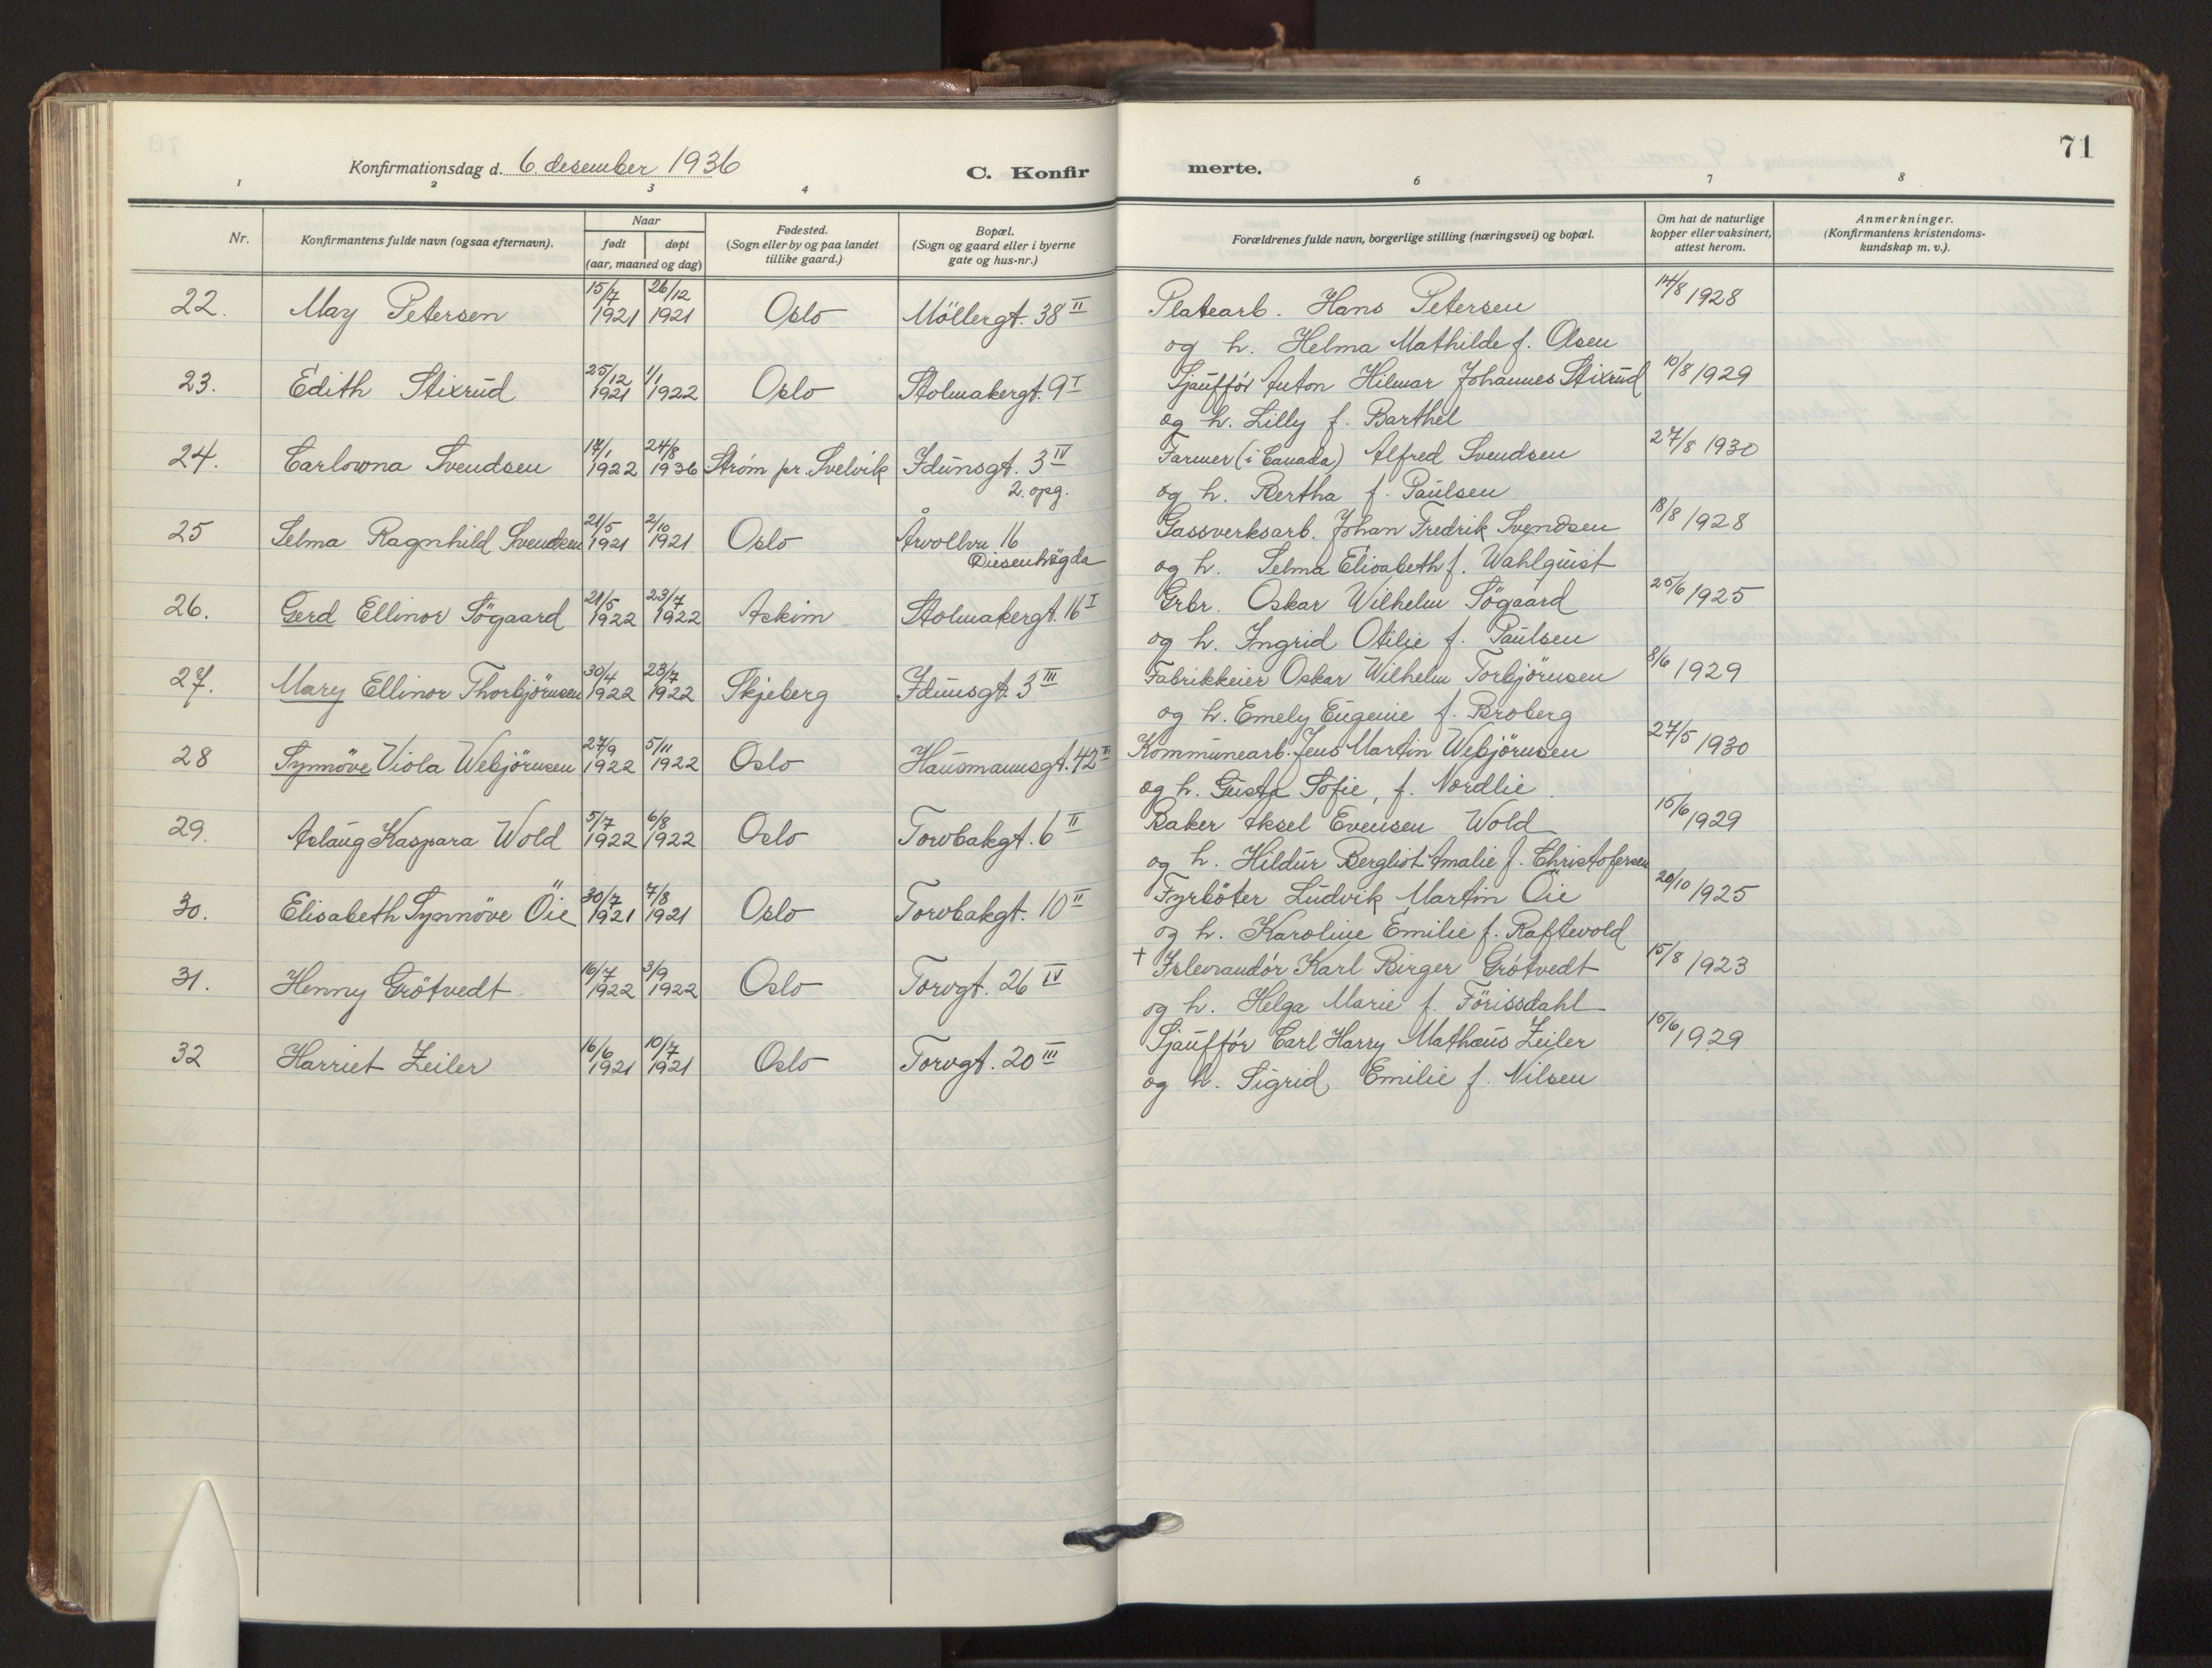 71
Konfirmationsdag d. 6. desember 1936
C. Konfirmerte.
1 2 3 4 6 7 8
Nr.
Konfirmantens fulde navn (ogsaa efternavn).
Naar
født døpt
(aar, maaned og dag)
Fødested.
(Sogn eller by og paa landet
tillike gaard.)
Bopæl.
(Sogn og gaard eller i byerne
gate og hus-nr.)
Forældrenes fulde navn, borgerlige stilling (næringsvei) og bopæl.
Om hat de naturlige
kopper eller vaksinert,
attest herom.
Anmerkninger.
(Konfirmantens kristendoms-
kundskap m. v.).
22. May Petersen 15/7 1921 26/12 1921 Oslo Möllergt. 38 II Platearb. Hans Petersen 14/8 1928
og h. Helma Mathilde f. Olsen
23. Edith Stixrud 25/12 1921 1/1 1922 Oslo Stolmakergt. 9 I Sjauffór Anton Hilmar Johannes Stixrud 10/8 1929
og h. Lilly f. Barthel
24. Carlowna Svendsen 17/1 1922 24/8 1936 Strøm pr. Svelvik Idunsgt. 3 IV Farmer (i Canada) Alfred Svendsen 27/8 1930
2. opg.
og h. Bertha f. Paulsen
25 Selma Ragnhild Svendsen 21/5 1921 2/10 1921 Oslo Årvollvn 16 Gassverksarb. Johan Fredrik Svendsen 18/8 1928
Disenhögda
og h. Selma Elisabeth f. Wahlquist
26. Gerd Ellinor Sögaard 21/5 1922 23/7 1922 Askim Stolmakergt. 16 I Grbr. Oskar Wilhelm Sögaard 25/6 1925
og h. Ingrid Otilie f. Paulsen
27. Mary Ellinor Thorbjörnsen 30/4 1922 23/7 1922 Skjeberg Idunsgt. 3 III Fabrikkeier Oskar Wilhelm Torbjörnsen 8/6 1929
og h. Emely Eugenie f. Broberg
28 Synnöve Viola Webjörnsen 27/9 1922 5/11 1922 Oslo Hausmannsgt. 42 Kommunearb. Jens Martin Webjörnsen 27/5 1930
og h. Gusta Sofie, f. Nordlie
29. Aslaug Kaspara Wold 5/7 1922 6/8 1922 Oslo Torvbakgt. 6 II Baker Aksel Evensen Wold 15/6 1929
og h. Hildur Bergliot Amalie f. Christofersen
30. Elisabeth Synnöve Öie 30/7 1921 7/8 1921 Oslo Torvbakgt. 10 II Fyrböter Ludvik Martin Öie 20/10 1925
og h. Karoline Emilie f. Raftevold
31. Henny Grötvedt 16/7 1922 3/9 1922 Oslo Torvgt. 26 IV † Islevrandór Karl Birger Grótvedt 15/8 1923
og h. Helga Marie f. Förissdahl
32 Harriet Zeiler 16/6 1921 10/7 1921 Oslo Torvgt. 20 III Sjauffór Carl Harry Mathæus Zeiler 15/6 1929
og h. Sigrid Emilie f. Nilsen